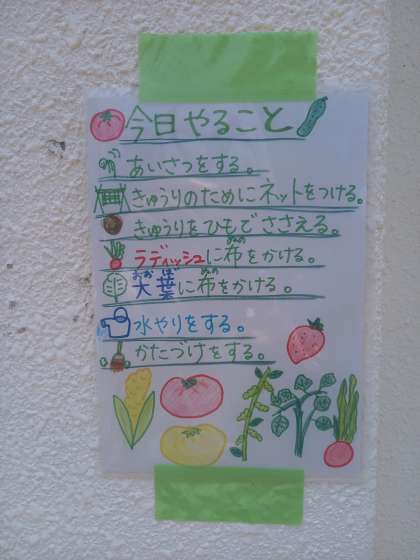 今日やること
あいさつをする。
きゅうりのためにネットをつける。
きゅうりをひもでささえる。
ラディッシュに布をかける。
大葉に布をかける。
水やりをする。
かたづけをする。